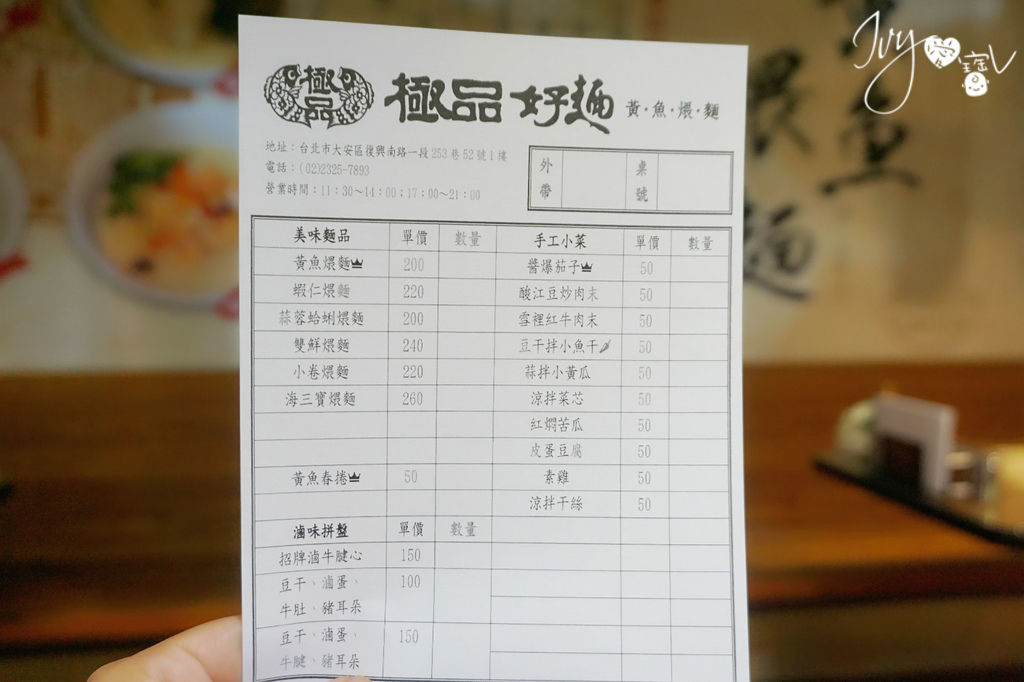 Ivy 愛寶
極品
極品 好麵 黃·魚·煨·麵
地址：台北市大安區復興南路一段253巷52號1樓
電話：(02)2325-7893
營業時間：11：30～14：00；17：00～21：00
外帶 桌號
美味麵品 單價 數量 手工小菜 單價 數量
黃魚煨麵 200 醬爆茄子 50
蝦仁煨麵 220 酸江豆炒肉末 50
蒜蓉蛤蜊煨麵 200 雪裡紅牛肉末 50
雙鮮煨麵 240 豆干拌小魚干 50
小卷煨麵 220 蒜拌小黃瓜 50
海三寶煨麵 260 涼拌菜芯 50
紅燜苦瓜 50
皮蛋豆腐 50
黃魚春捲 50 素雞 50
涼拌干絲 50
滷味拼盤 單價 數量
招牌滷牛腱心 150
豆干、滷蛋、 100
牛肚、豬耳朵
豆干、滷蛋、 150
牛腱、豬耳朵
煨
魚
麵